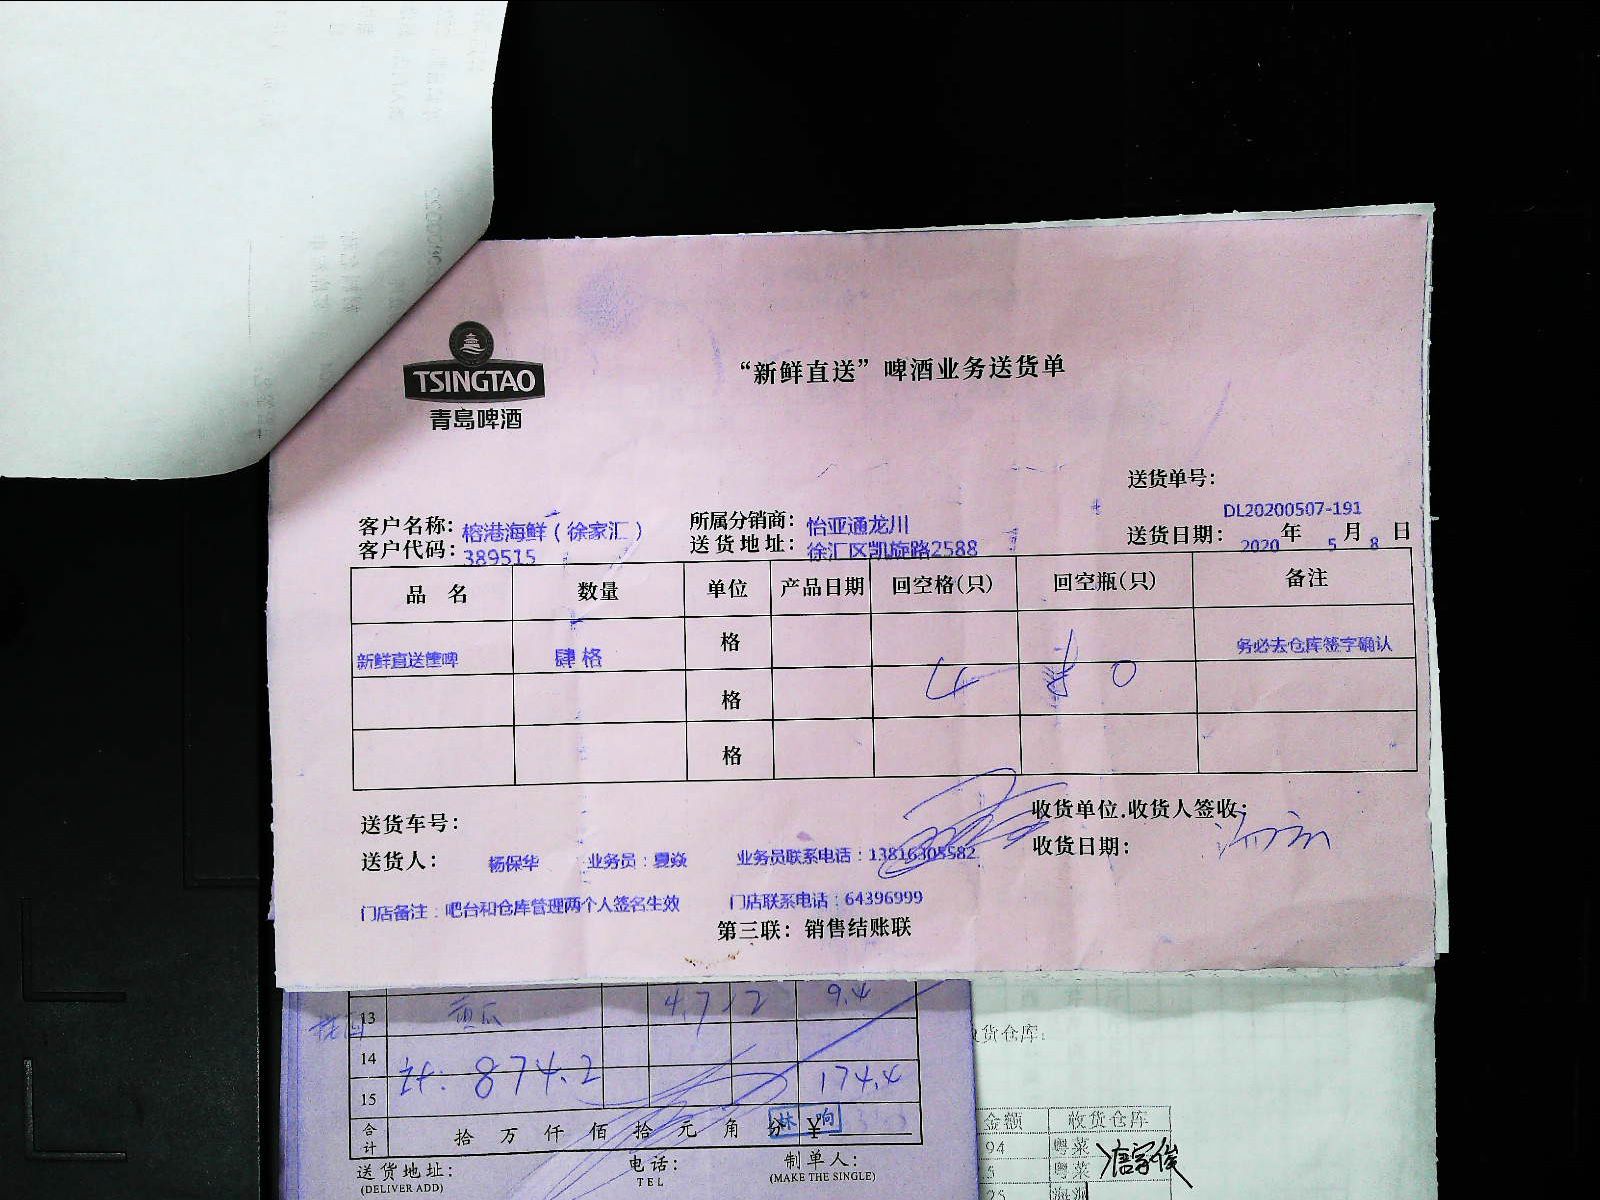 TSINGTAO
青島啤酒
“新鲜直送”啤酒业务送货单
送货单号：
DL20200507-191
客户名称：榕港海鲜（徐家汇） 所属分销商：怡亚通龙川 送货日期：2020年5月8日
客户代码：389515 送货地址：徐汇区凯旋路2588
品 名 数量 单位 产品日期 回空格(只) 回空瓶(只) 备注
新鲜直送筐啤 肆格 格 务必去仓库签字确认
格 4 0
格
送货车号： 收货单位.收货人签收：
送货人： 杨保华 业务员：夏焱 业务员联系电话：13816305582 收货日期：
门店备注：吧台和仓库管理两个人签名生效 门店联系电话：64396999
第三联：销售结账联
13 黄瓜 4.7 2 9.4
14
计：874.2
15 174.4
合计 拾 万 仟 佰 拾 元 角 分 ¥
林 响
送货地址： 电话： 制单人：
(DELIVER ADD) TEL (MAKE THE SINGLE)
货仓库：
金额 收货仓库
94 粤菜
5 粤菜
25